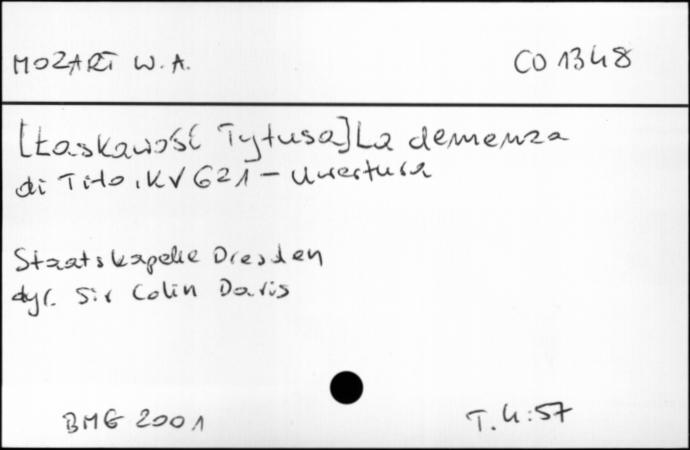 MOZART W. A.
CD 1348
[Łaskawość Tytusa] La clemenza
di Tito, KV 621 - Uwertura
Staatskapelle Dresden
dyr. Sir Colin Davis
BMG 2001
T. 4:57